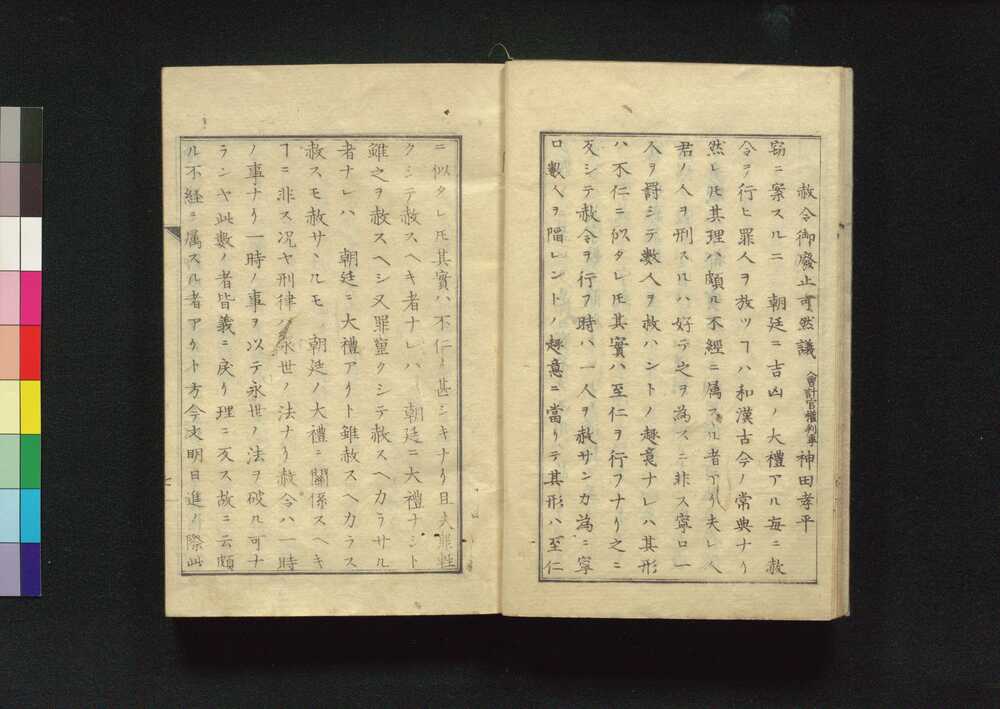 赦令御廢止可然議 會計官權判事 神田孝平
窃ニ案スルニ 朝廷ニ吉凶ノ大禮アル毎ニ赦
令ヲ行ヒ罪人ヲ放ツヿハ和漢古今ノ常典ナリ
然レ𪜈其理ハ頗ル不經ニ属スル者アリ夫レ人
君ノ人ヲ刑スルハ好テ之ヲ為スニ非ス寧ロ一
人ヲ罸シテ數人ヲ救ハントノ趣意ナレハ其形
ハ不仁ニ似タレ𪜈其實ハ至仁ヲ行フナリ之ニ
反シテ赦令ヲ行フ時ハ一人ヲ赦サンカ為ニ寧
ロ數人ヲ陷レントノ趣意ニ當リテ其形ハ至仁
ニ似タレ𪜈其實ハ不仁ノ甚シキナリ且夫罪軽
クシテ赦スヘキ者ナレハ 朝廷ニ大禮ナシト
雖之ヲ赦スヘシ又罪重クシテ赦スヘカラサル
者ナレハ 朝廷ニ大禮アリト雖赦スヘカラス
赦スモ赦サヽルモ 朝廷ノ大禮ニ關係スヘキ
ヿニ非ス况ヤ刑律ハ永世ノ法ナリ赦令ハ一時
ノ事ナリ一時ノ事ヲ以テ永世ノ法ヲ破ル可ナ
ランヤ此數ノ者皆義ニ戻リ理ニ反ス故ニ云頗
ル不経ニ属スル者アリト方今文明日進ノ際此